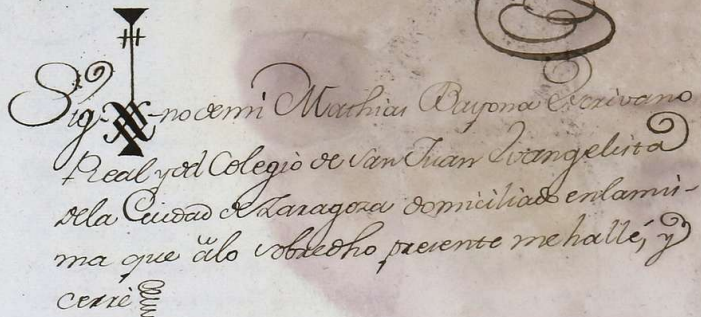 Sig-no de mi Mathias Bayona Escrivano
Real y del Colegio de San Juan Evangelista
de la Ciudad de Zaragoza domiciliado en la mis-
ma que á lo sobredho presente me hallé, y
cerré